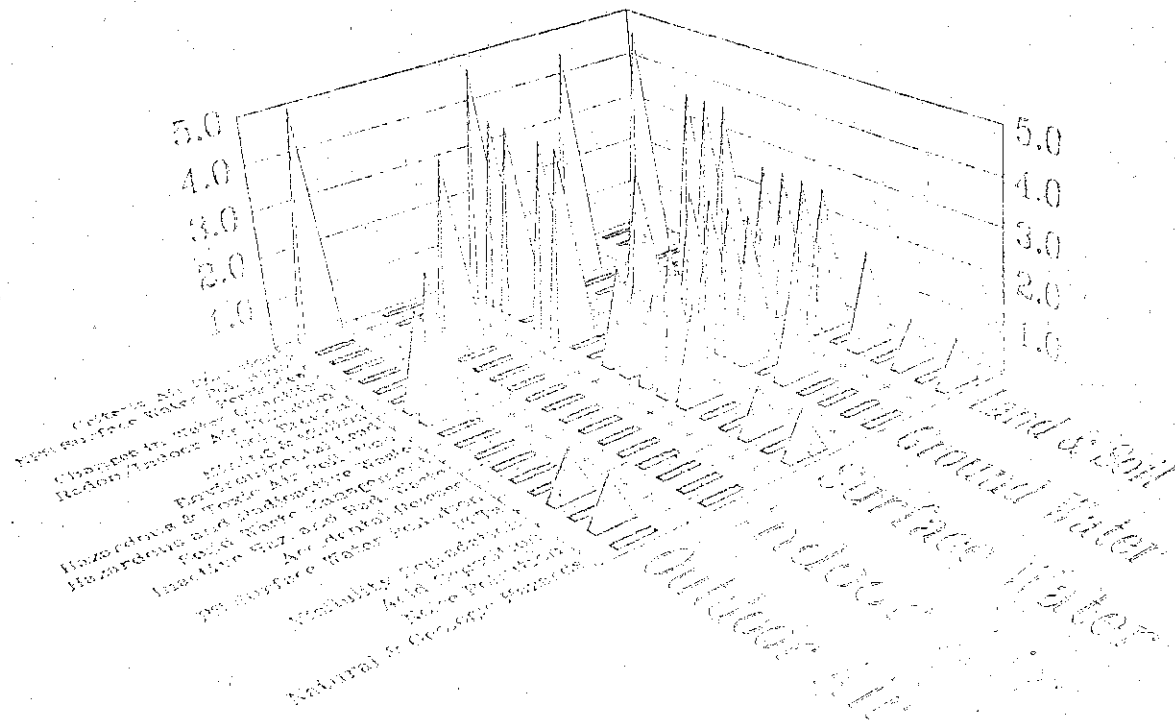 5.0
4.0
3.0
2.0
1.0
5.0
4.0
3.0
2.0
1.0
Criteria Air
Surface Water
Changes in Water Quantity
Radon/Indoor Air Pollution
Mining & Milling
Environmental Lead
Hazardous & Toxic Air Pollution
Hazardous and Radioactive Waste
Solid Waste Management
Inactive Haz. and Rad. Waste
Accidental Releases
Surface Water Pollution
Visibility Degradation
Acid Deposition
Noise Pollution
Natural & Geologic Hazards
Land & Soil
Ground Water
Surface Water
Indoor
Outdoor Air